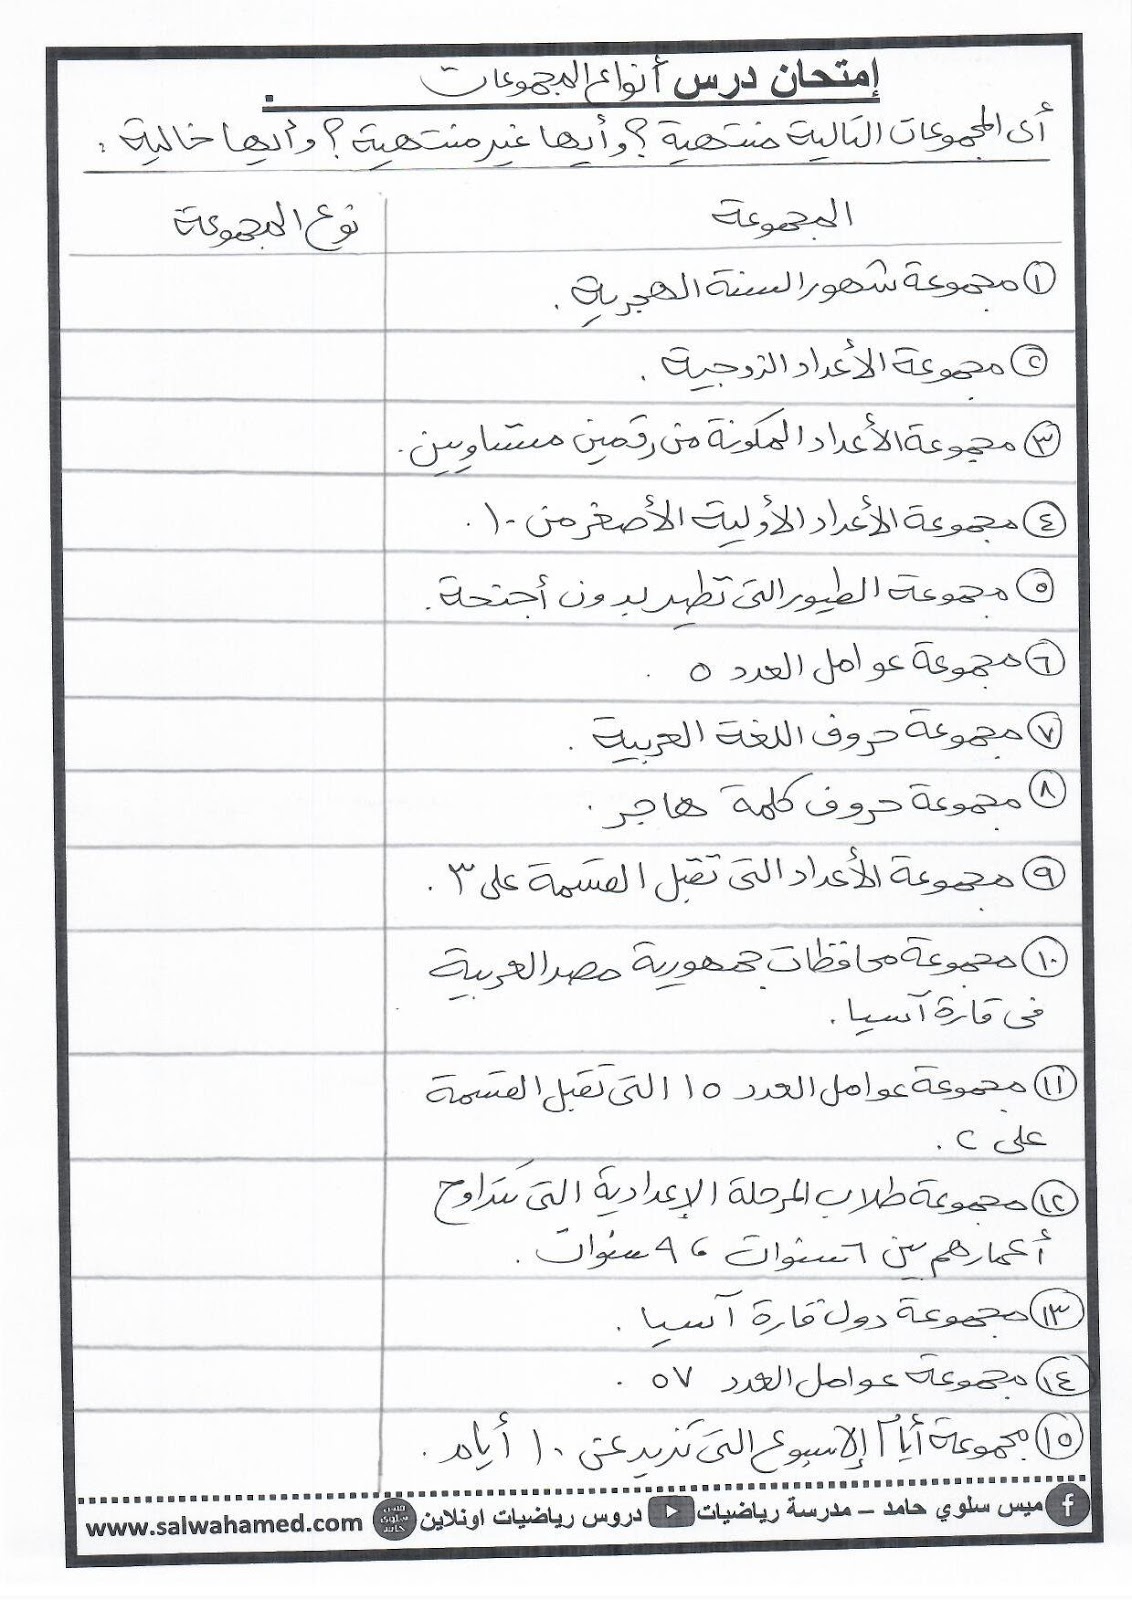 إمتحان درس أنواع المجموعات .
أى المجموعات التالية منتهية ؟ وأيها غير منتهية ؟ وأيها خالية :
المجموعة
نوع المجموعة
١ مجموعة شهور السنة الهجرية .
٢ مجموعة الأعداد الزوجية .
٣ مجموعة الأعداد المكونة من رقمين متساويين .
٤ مجموعة الأعداد الأولية الأصغر من ١٠ .
٥ مجموعة الطيور التى تطير بدون أجنحة .
٦ مجموعة عوامل العدد ٥ .
٧ مجموعة حروف اللغة العربية .
٨ مجموعة حروف كلمة هاجر .
٩ مجموعة الأعداد التى تقبل القسمة على ٣ .
١٠ مجموعة محافظات جمهورية مصر العربية
فى قارة آسيا .
١١ مجموعة عوامل العدد ١٥ التى تقبل القسمة
على ٢ .
١٢ مجموعة طلاب المرحلة الإعدادية التى تتراوح
أعمارهم بين ٦ سنوات ، ٩ سنوات .
١٣ مجموعة دول قارة آسيا .
١٤ مجموعة عوامل العدد ٥٧ .
١٥ مجموعة أيام الإسبوع التى تزيد عن ١٠ أيام .
ميس سلوي حامد – مدرسة رياضيات دروس رياضيات اونلاين ميس سلوي حامد www.salwahamed.com